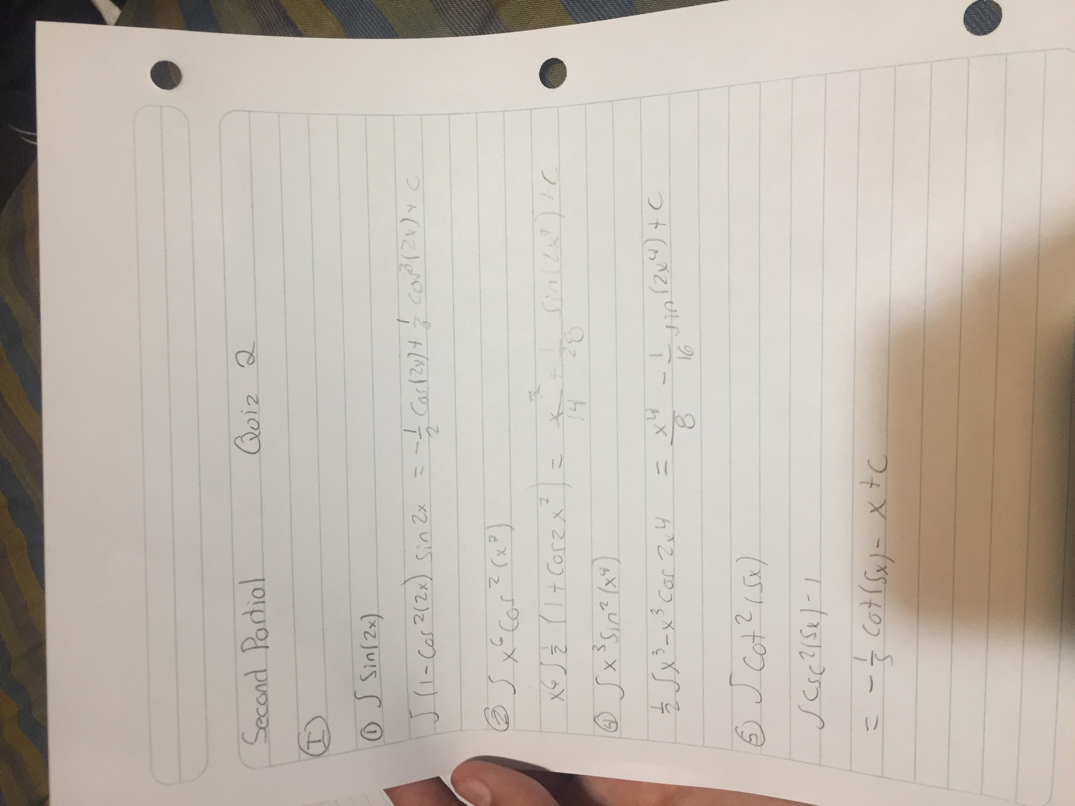 Second Partial Quiz 2
I
① ∫ Sin(2x)
∫ (1-Cos²(2x) sin 2x = -1/2 Cos(2x) + 1/6 cos³(2x) + C
② ∫ x⁶ Cos² (x⁷)
x⁶ ∫ 1/2 (1 + Cos 2x⁷) = x⁷/14 + 1/28 Sin(2x⁷) + C
④ ∫ x³ Sin² (x⁴)
1/2 ∫ x³ - x³ Cos 2x4 = x⁴/8 - 1/16 sin(2x⁴) + C
⑤ ∫ Cot² (5x)
∫ Csc² (5x) - 1
= -1/5 Cot(5x) - x + C